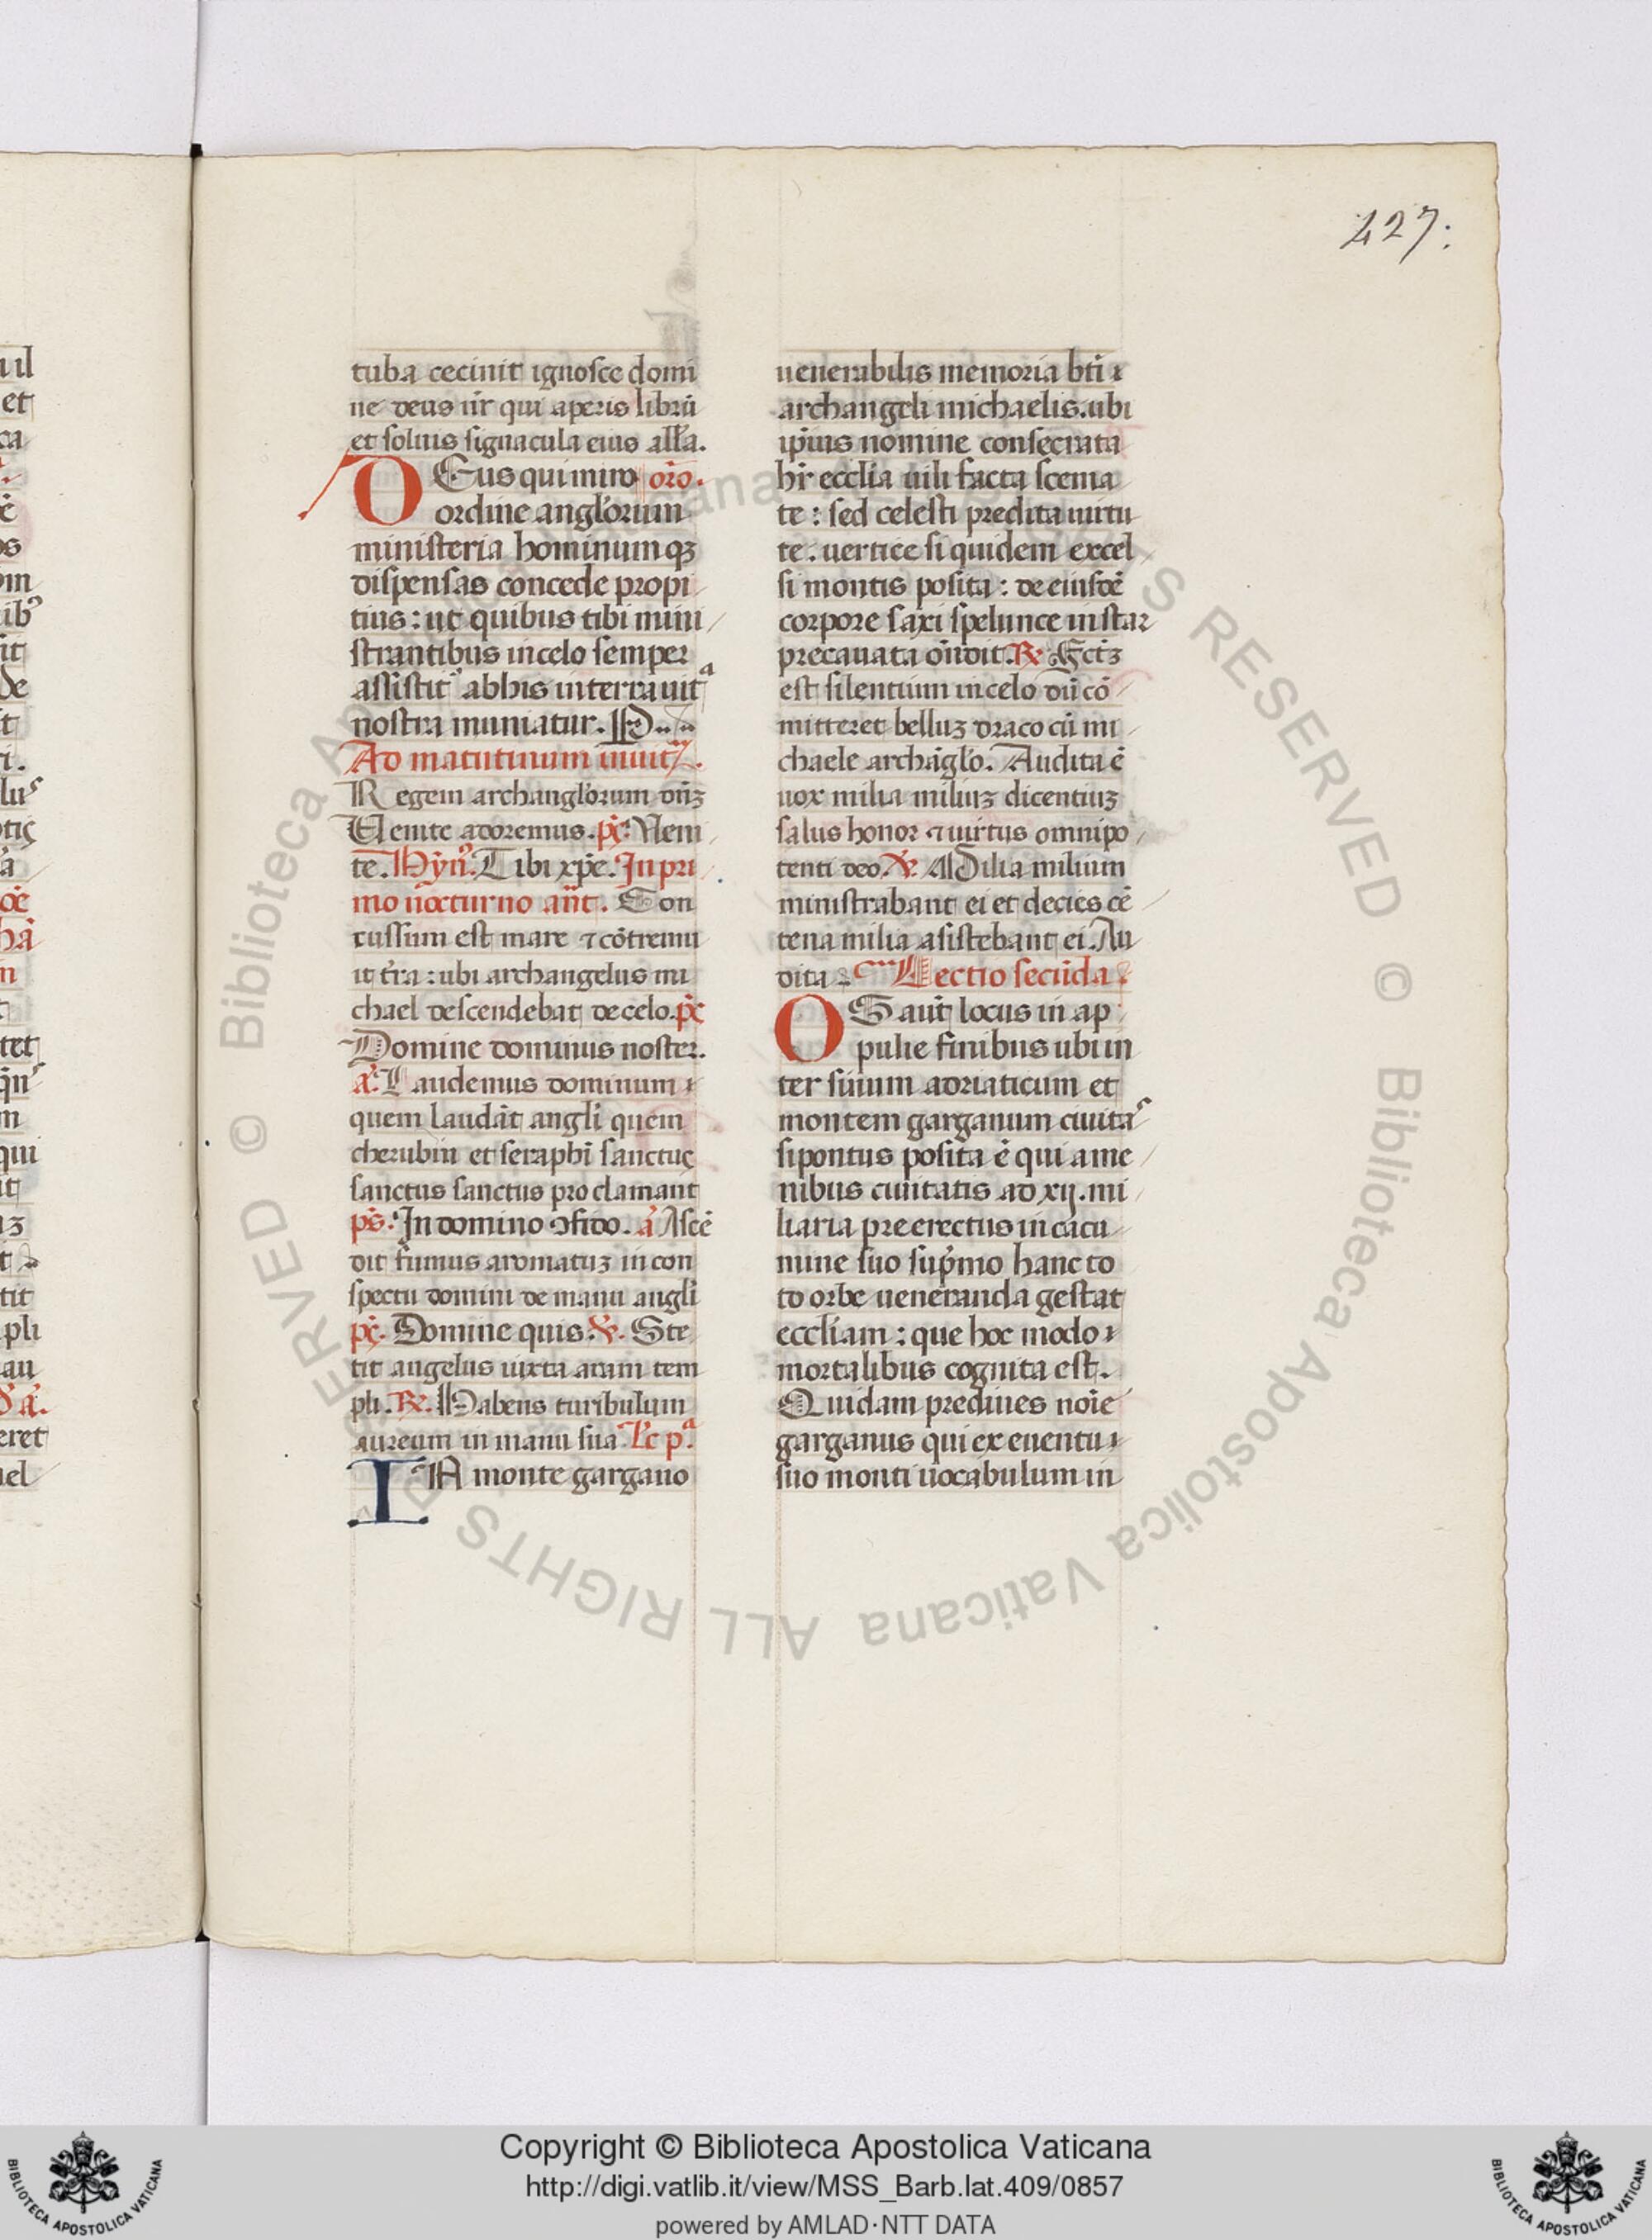 427.
tuba cecinit ignosce domi
ne deus nr̄ qui aperis librū
et soluis signacula eius all̄a.
DEus qui miro or̄o.
ordine angl̄orum
ministeria hominumqꝫ
dispensas concede propi
tius: ut quibus tibi mini
strantibus in celo semper
assistit᷑ ab his in terra uitᵃ
nostra muniatur. P
Ad matutinum inuit
Regem archangl̄orum dn̄ꝫ
Uenite adoremus. ps̄. Ueni
te. Hyn̄. Tibi xp̄e. In pri
mo nocturno an̄t. Con
cussum est mare ⁊ cōtremu
it tr̄a: ubi archangelus mi
chael descendebat de celo. ps̄
Domine dominus noster.
a᷑. Laudemus dominum
quem laudāt angl̄i quem
cherubin et seraphī sanctus
sanctus sanctus proclamant
ps̄. In domino ꝯfido. a᷑ Ascē
dit fumus aromatuꝫ in con
spectu domini de manu angl̄i
ps̄. Domine quis. ℣. Ste
tit angelus iuxta aram tem
pli. ℟. Habens turibulum
aureum in manu sua. Lc̄ pᵃ.
IN monte gargano
uenerabilis memoria bt̄i
archangeli michaelis. ubi
ip̄ius nomine consecrata
hr̄ eccl̄ia uili facta scema
te: sed celesti predita uirtu
te. uertice siquidem excel
si montis posita: de eiusdē
corpore saxi spelunce instar
precauata on̄dit. ℟ Fctꝫ
est silentium in celo dū cō
mitteret belluꝫ draco cū mi
chaele archāgl̄o. Audita ē
uox milia miliuꝫ dicentiuꝫ
salus honor ⁊ uirtus omnipo
tenti deo. ℣. Milia milium
ministrabant ei et decies cē
tena milia asistebant ei. Au
dita Lectio secūda
OSt aut̄ locus in ap
pulie finibus ubi in
ter sinum adriaticum et
montem garganum ciuitaˢ
sipontus posita ē qui a me
nibus ciuitatis ad xij. mi
liaria preerectus in cacu
mine suo sup̄mo hanc to
to orbe ueneranda gestat
eccl̄iam: que hoc modo
mortalibus cognita est.
Quidam prediues noīe
garganus qui ex euentu
suo monti uocabulum in
Copyright © Biblioteca Apostolica Vaticana
http://digi.vatlib.it/view/MSS_Barb.lat.409/0857
powered by AMLAD·NTT DATA